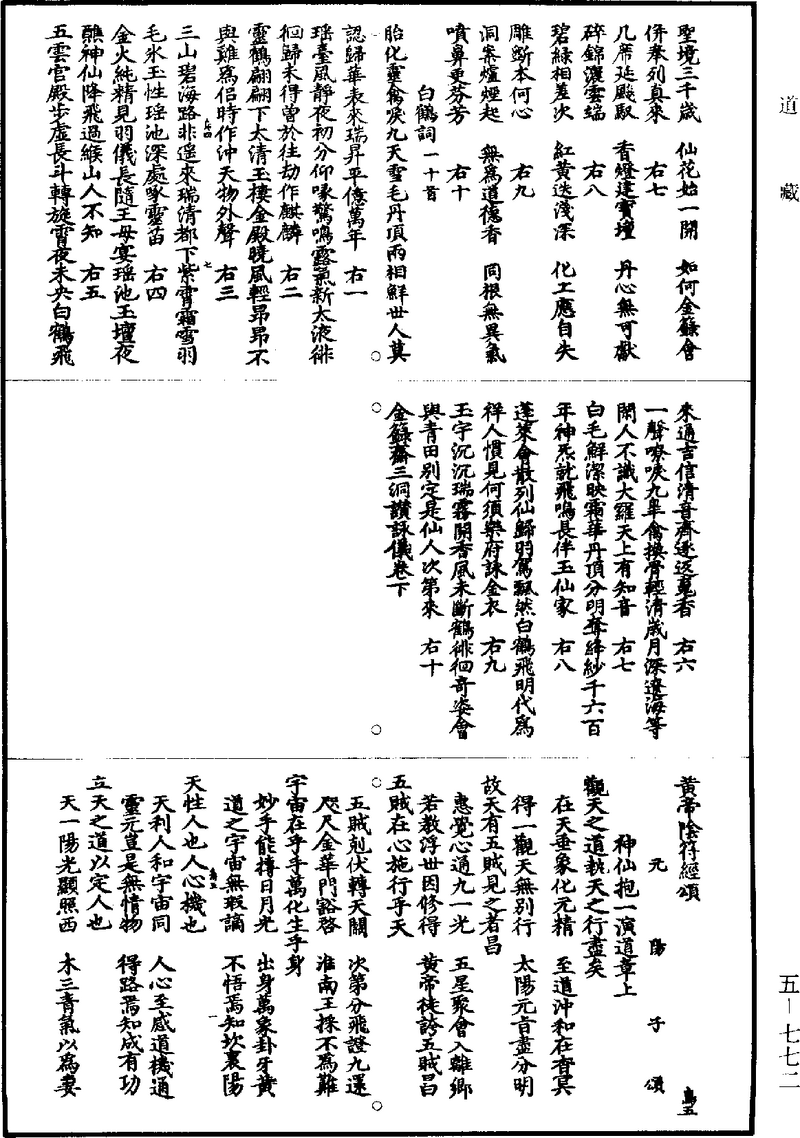 道藏
聖境三千歲　仙花始一開　如何金籙會
併奉列真來　右七
几席延飈馭　香燈建寶壇　丹心無可獻
碎錦灑雲端　右八
碧綠相差次　紅黃迭淺深　化工應自失
雕斲本何心　右九
洞案爐煙起　無為道德香　同根無異氣
噴鼻更芬芳　右十
白鶴詞一十首
胎化靈禽唳九天雪毛丹頂兩相鮮世人莫
認歸華表來瑞昇平億萬年　右一
瑤臺風靜夜初分仰啄驚鳴露氣新太液徘
徊歸未得曾於往劫作麒麟　右二
靈鶴翩翩下太清玉樓金殿曉風輕昂昂不
與雞為侶時作沖天物外聲　右三
三山碧海路非遙來瑞清都下紫霄霜雪羽
毛氷玉性瑤池深處啄靈苗　右四
金火純精見羽儀長隨王母宴瑤池玉壇夜
醮神仙降飛過緱山人不知　右五
五雲宮殿步虛長斗轉旋霄夜未央白鶴飛
來通吉信清音齊逐返䰟香　右六
一聲嘹唳九皋禽換骨輕清歲月深遼海等
閑人不識大羅天上有知音　右七
白毛鮮潔映霜華丹頂分明奪絳紗千六百
年神炁就飛鳴長伴玉仙家　右八
蓬萊會散列仙歸羽駕飄然白鶴飛明代為
祥人慣見何須樂府詠金衣　右九
玉宇沉沉瑞霧開香風未斷鶴徘徊奇姿會
與青田別定是仙人次第來　右十
金籙齋三洞讚詠儀卷下
黃帝陰符經頌
元陽子頌
神仙抱一演道章上
觀天之道執天之行盡矣
在天垂象化元精　至道沖和在杳冥
得一觀天無別行　太陽元旨盡分明
故天有五賊見之者昌
惠覺心通九一光　五星聚會入離鄉
若教浮世因修得　黃帝徒誇五賊昌
五賊在心施行乎天
五賊剋伏轉天關　次第分飛證九還
咫尺金華門豁啓　淮南王採不為難
宇宙在乎手萬化生乎身
妙手能摶日月光　出身萬象卦牙黃
道之宇宙無瑕謫　不悟焉知坎裏陽
天性人也人心機也
天利人和宇宙同　人心至感道機通
靈元豈是無情物　得路焉知成有功
立天之道以定人也
天一陽光顯照西　木三青氣以為妻
五－七七二